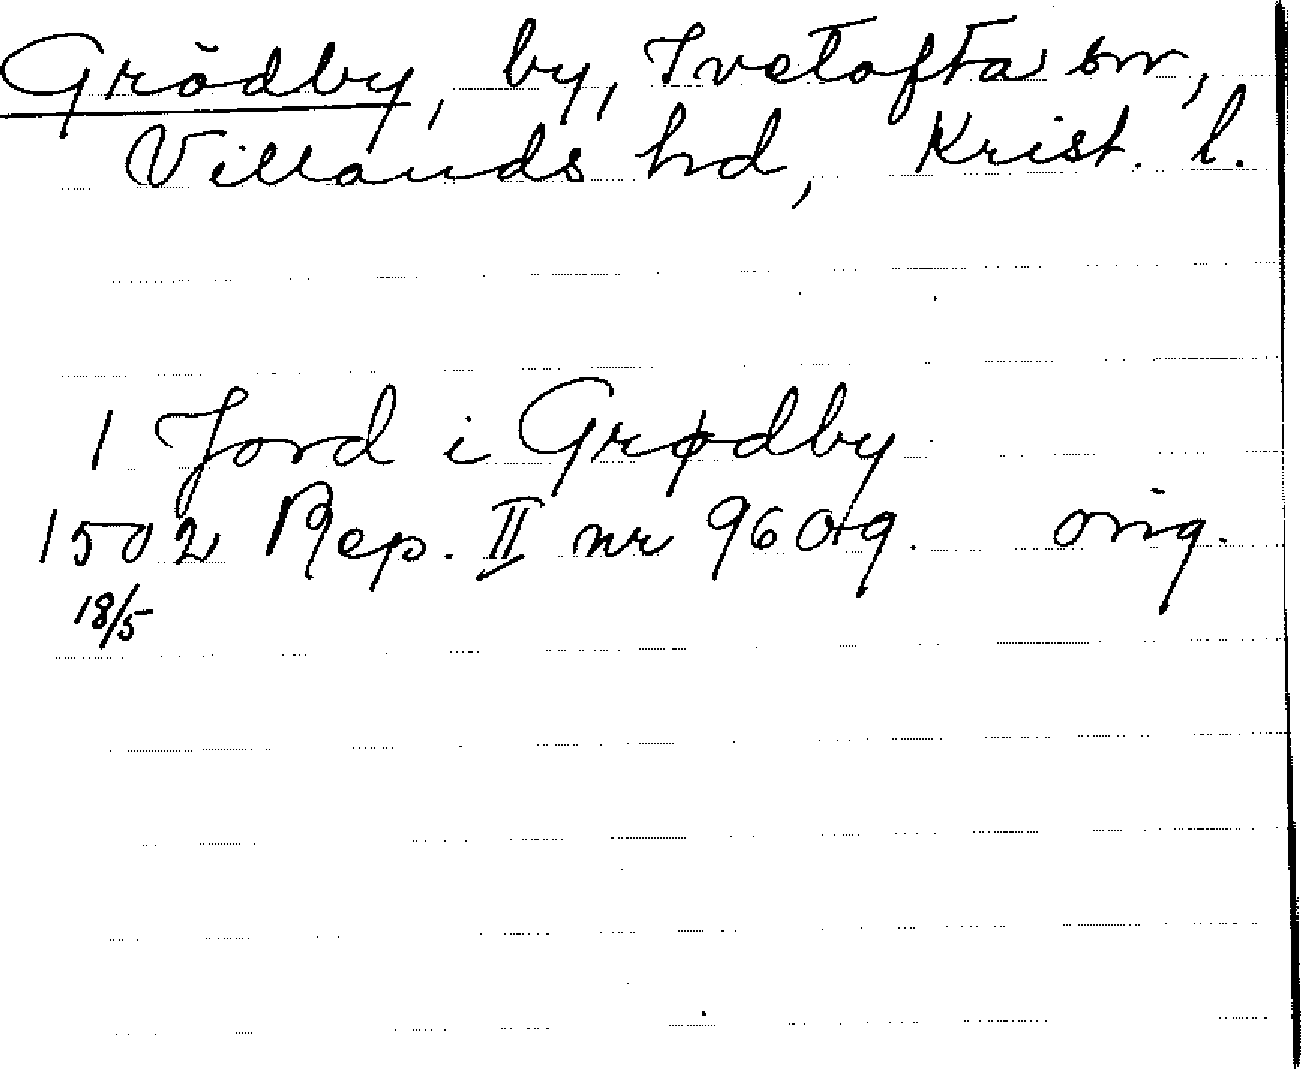 Grödby, by, Ivetofta sn,
Villands hd, Krist. l.
1 Jord i Grødby
1502 Rep. II nr 9609. orig.
18/5